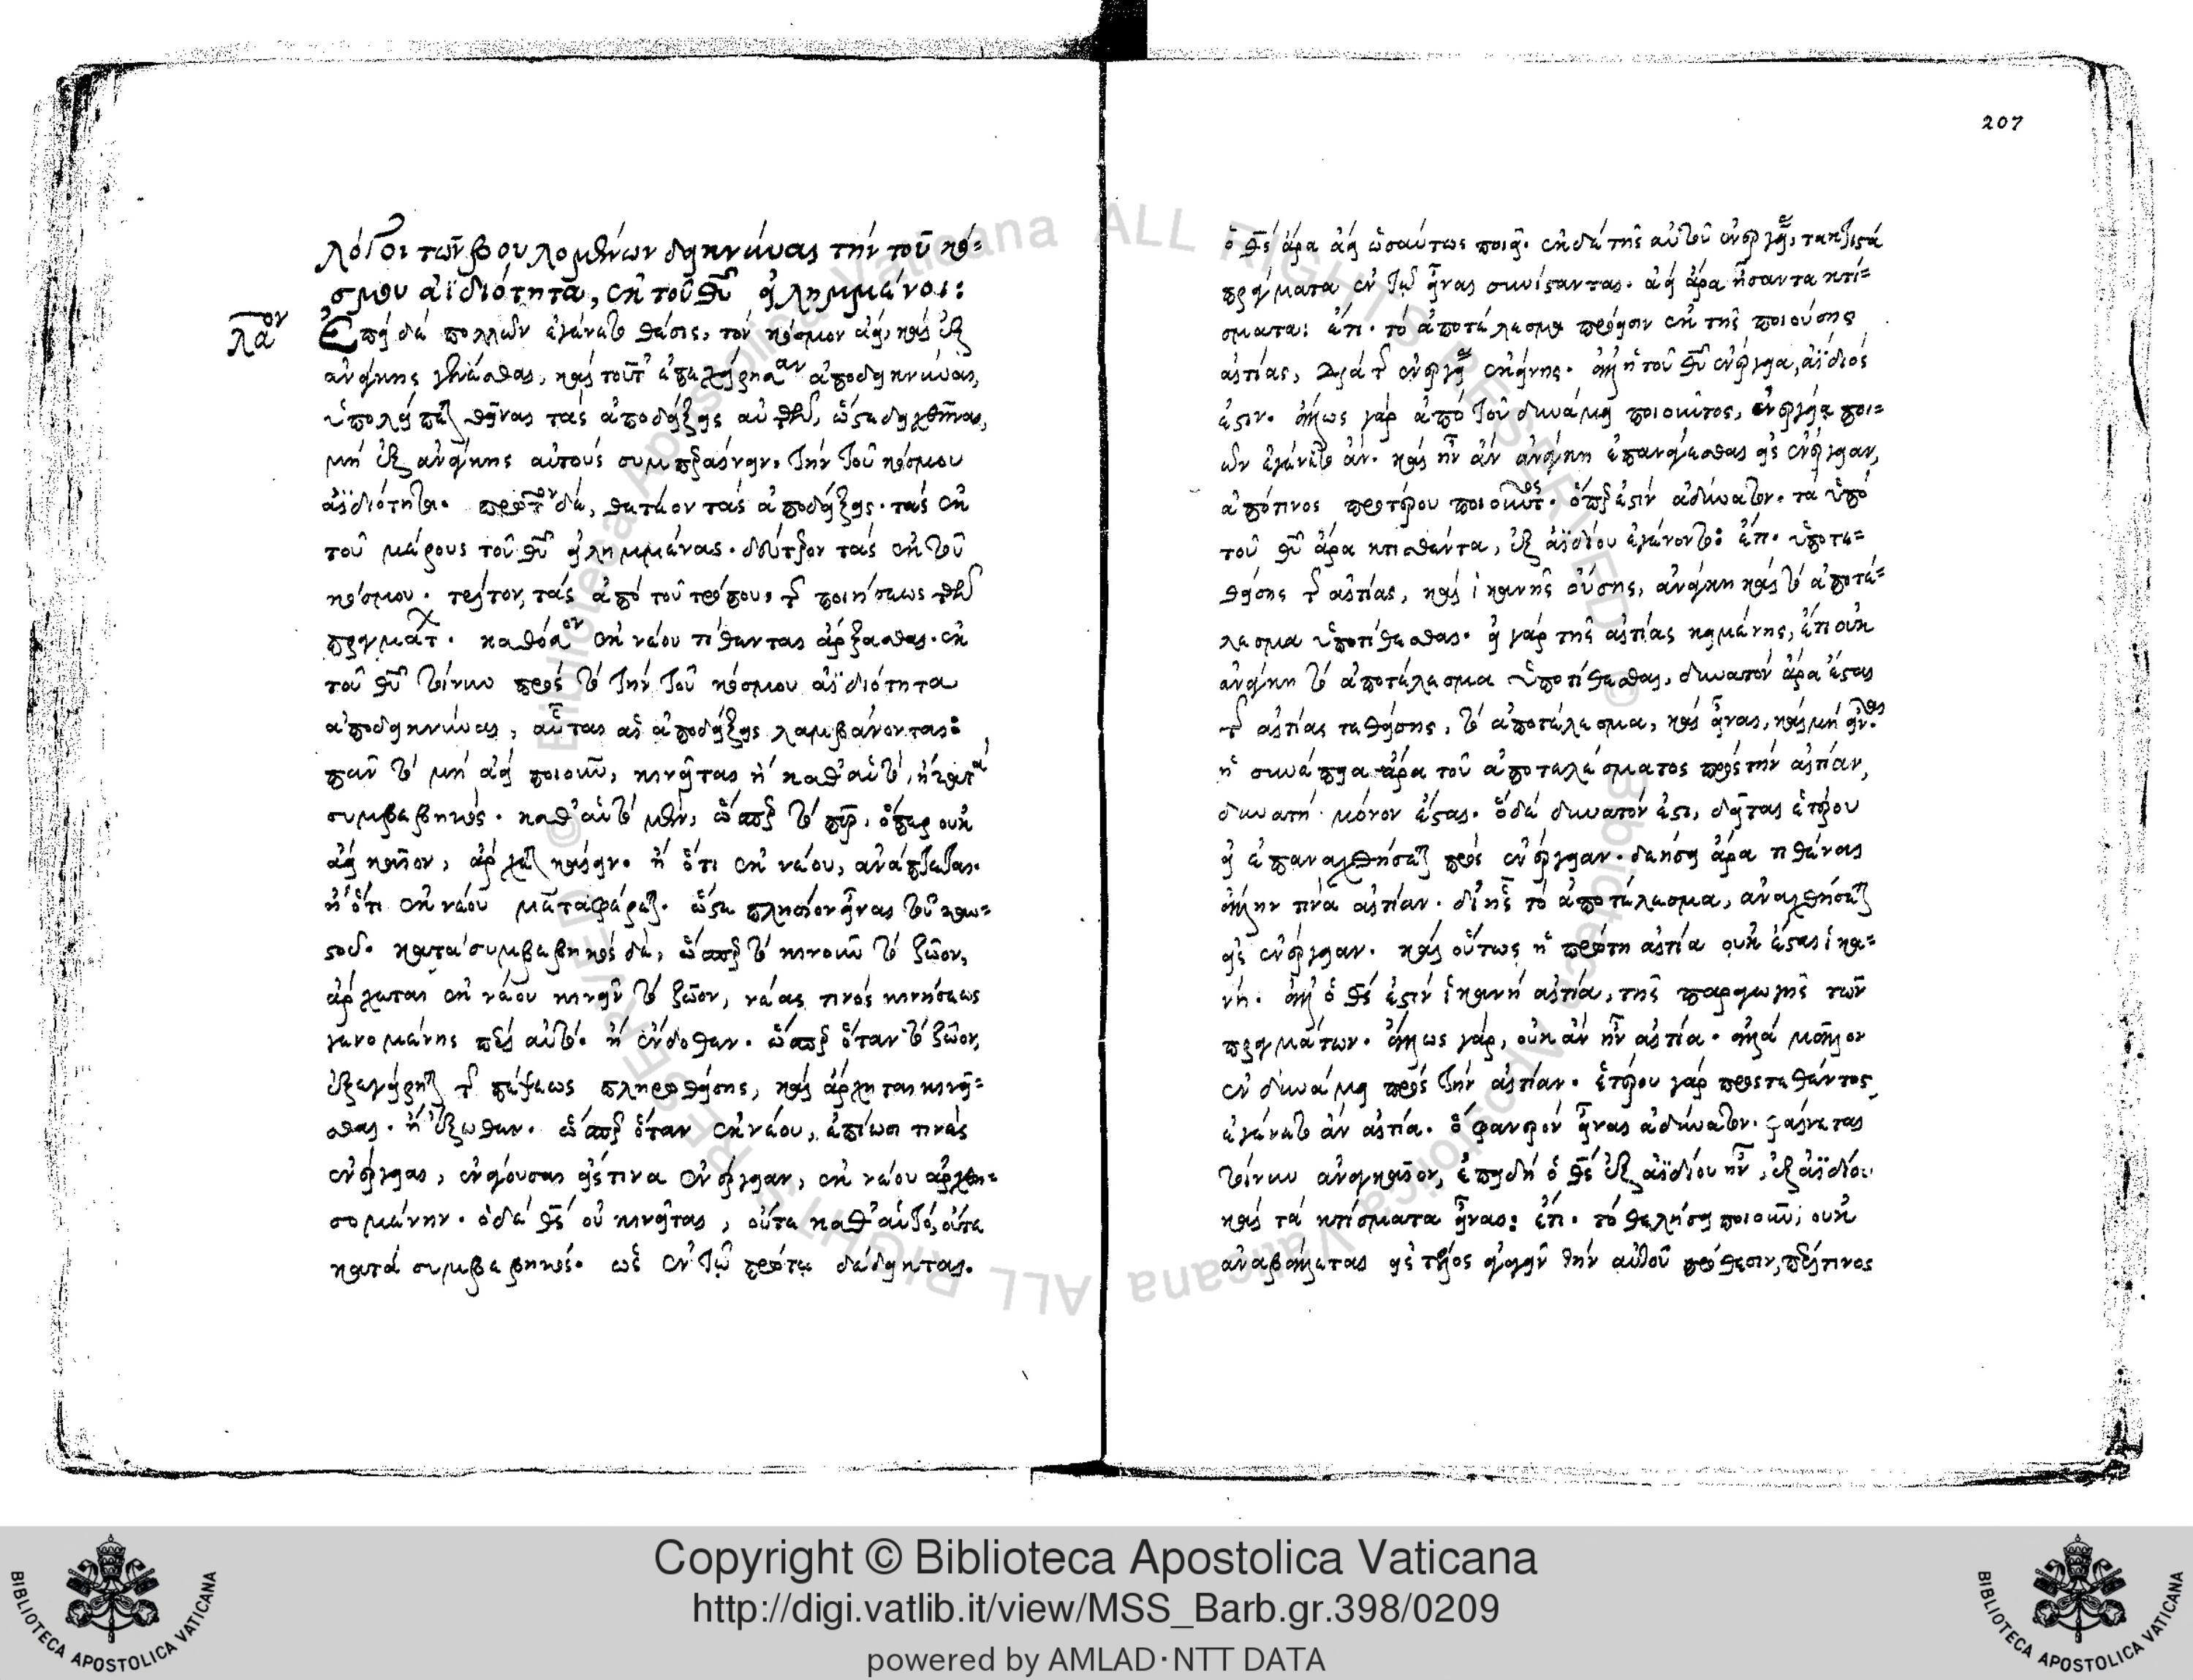 λόγοι τῶν βουλομένων δεικνύναι τὴν τοῦ κό-
σμου ἀϊδιότητα, ἐκ τοῦ θῦ εἰλημμένοι:
λα^ον Ἐπεὶ δὲ πολλῶν ἐγένετο θέσις, τὸν κόσμον ἀεὶ, καὶ ἐξ
ἀνάγκης γενέσθαι, καὶ τοῦτ' ἐπεχείρησαν ἀποδεικνύναι,
τὰς ἀποδείξεις αὐτῶν, ὥστε δειχθῆναι,
μὴ ἐξ ἀνάγκης αὐτοὺς συμπεραίνειν τὴν τοῦ κόσμου
ἀϊδιότητα. πρῶτον δὲ, θετέον τὰς ἀποδείξεις τὰς ἐκ
τοῦ μέρους τοῦ θῦ εἰλημμένας. δεύτερον τὰς ἐκ τοῦ
κόσμου. τρίτον, τὰς ἀπὸ τοῦ τρόπου, τῆς ποιήσεως τῶν
πραγμάτ. καθόσον ἐκ νέου τίθενται ἄρξασθαι. ἐκ
τοῦ θῦ τοίνυν πρὸς τὸ τὴν τοῦ κόσμου ἀϊδιότητα
ἀποδεικνύναι, αὗται αἱ ἀποδείξεις λαμβάνονται:
πᾶν τὸ μὴ ἀεὶ ποιοῦν, κινεῖται ἢ καθ' αὑτὸ, ἢ κατὰ
συμβεβηκός. καθ' αὑτὸ μὲν, ὥσπερ τὸ πῦρ, ὅπερ οὐκ
ἀεὶ καῖον, ἄρχεται καίειν. ἢ ὅτι ἐκ νέου, ἀνάπτεται.
ἢ ὅτι ἐκ νέου μεταφέρεται. ὥστε πλησίον εἶναι τοῦ καυ-
στοῦ. κατὰ συμβεβηκὸς δὲ, ὥσπερ τὸ κινοῦν τὸ ζῶον,
ἄρχεται ἐκ νέου κινεῖν τὸ ζῶον, νέας τινὸς κινήσεως
γενομένης περὶ αὐτό. ἢ ἔνδοθεν. ὥσπερ ὅταν τὸ ζῶον,
ἐξεγείρηται τῆς πέψεως πληρωθείσης, καὶ ἄρχηται κινεῖ-
σθαι. ἢ ἔξωθεν. ὥσπερ ὅταν ἐκ νέου, ἐπίωσι τινὲς
ἐνέργειαι, ἐνάγουσαι εἴς τινα ἐνέργειαν, ἐκ νέου ἀρχθη-
σομένην. ὁ δὲ θς οὐ κινεῖται, οὔτε καθ' αὑτὸ, οὔτε
κατὰ συμβεβηκός. ὡς ἐν τῷ πρώτῳ δέδεικται.
207
ὁ θς ἄρα ἀεὶ ὡσαύτως ποιεῖ. ἐκ δὲ τῆς αὐτοῦ ἐνεργείας, τὰ κτιστὰ
πράγματα ἐν τῷ εἶναι συνίστανται. ἀεὶ ἄρα ἦσαν τὰ κτί-
σματα: ἔτι. τὸ ἀποτέλεσμα πρόεισιν ἐκ τῆς ποιούσης
αἰτίας, διὰ τῆς ἐνεργείας ἐκείνης. ἀλλ' ἡ τοῦ θῦ ἐνέργεια, ἀΐδιός
ἐστιν. ἄλλως γὰρ ἀπὸ τοῦ δυνάμει ποιοῦντος, ἐνεργείᾳ ποι-
ῶν ἐγένετο ἄν. καὶ ἦν ἂν ἀνάγκη ἐπανάγεσθαι εἰς ἐνέργειαν,
ἀπό τινος προτέρου ποιοῦντος. ὅπερ ἐστὶν ἀδύνατον. τὰ ὑπὸ
τοῦ θῦ ἄρα κτισθέντα, ἐξ ἀϊδίου ἐγένοντο: ἔτι. ὑποτε-
θείσης τῆς αἰτίας, καὶ ἱκανῆς οὔσης, ἀνάγκη καὶ τὸ ἀποτέ-
λεσμα ὑποτίθεσθαι. εἰ γὰρ τῆς αἰτίας κειμένης, ἔτι οὐκ
ἀνάγκη τὸ ἀποτέλεσμα ὑποτίθεσθαι, δυνατὸν ἄρα ἔσται
τῆς αἰτίας τεθείσης, τὸ ἀποτέλεσμα, καὶ εἶναι, καὶ μὴ εἶναι.
ἡ συνέπεια ἄρα τοῦ ἀποτελέσματος πρὸς τὴν αἰτίαν,
δυνατὴ μόνον ἔσται. ὃ δὲ δυνατόν ἐστι, δεῖται ἑτέρου
εἰ ἐπαναχθήσεται πρὸς ἐνέργειαν. δεήσει ἄρα τιθέναι
ἄλλην τινὰ αἰτίαν. δι' ἧς τὸ ἀποτέλεσμα, ἀναχθήσεται
εἰς ἐνέργειαν. καὶ οὕτως ἡ πρώτη αἰτία οὐκ ἔσται ἱκα-
νή. ἀλλ' ὁ θς ἐστὶν ἱκανὴ αἰτία, τῆς παραγωγῆς τῶν
πραγμάτων. ἄλλως γὰρ, οὐκ ἂν ἦν αἰτία. ἀλλὰ μᾶλλον
ἐν δυνάμει πρὸς τὴν αἰτίαν. ἑτέρου γὰρ προστεθέντος
ἐγένετο ἂν αἰτία. ὃ φανερὸν εἶναι ἀδύνατον. φαίνεται
τοίνυν ἀναγκαῖον, ἐπειδὴ ὁ θς ἐξ ἀϊδίου ἦν, ἐξ ἀϊδίου
καὶ τὰ κτίσματα εἶναι: ἔτι. τὸ θελήσει ποιοῦν, οὐκ
ἀναβάλλεται εἰς τέλος ἀγαγεῖν τὴν αὐτοῦ πρόθεσιν, τινος
Copyright © Biblioteca Apostolica Vaticana
http://digi.vatlib.it/view/MSS_Barb.gr.398/0209
powered by AMLAD·NTT DATA
BIBLIOTECA APOSTOLICA VATICANA
BIBLIOTECA APOSTOLICA VATICANA